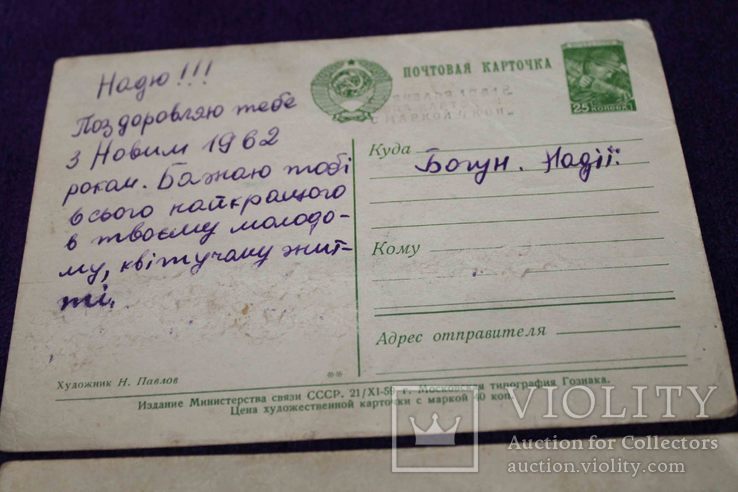 Надю!!!
Поздоровляю тебе
з Новим 1962
роком. Бажаю тобі
всього найкращого
в твоєму молодо-
му, квітучому жит-
ті.
Художник Н. Павлов
**
ПОЧТОВАЯ КАРТОЧКА
25 КОПЕЕК
Куда
Богун. Надії.
Кому
Адрес отправителя
Издание Министерства связи СССР. 21/XI-59 г. Московская типография Гознака.
Цена художественной карточки с маркой 40 коп.
VIOLITY
Auction for Collectors
auction.violity.com